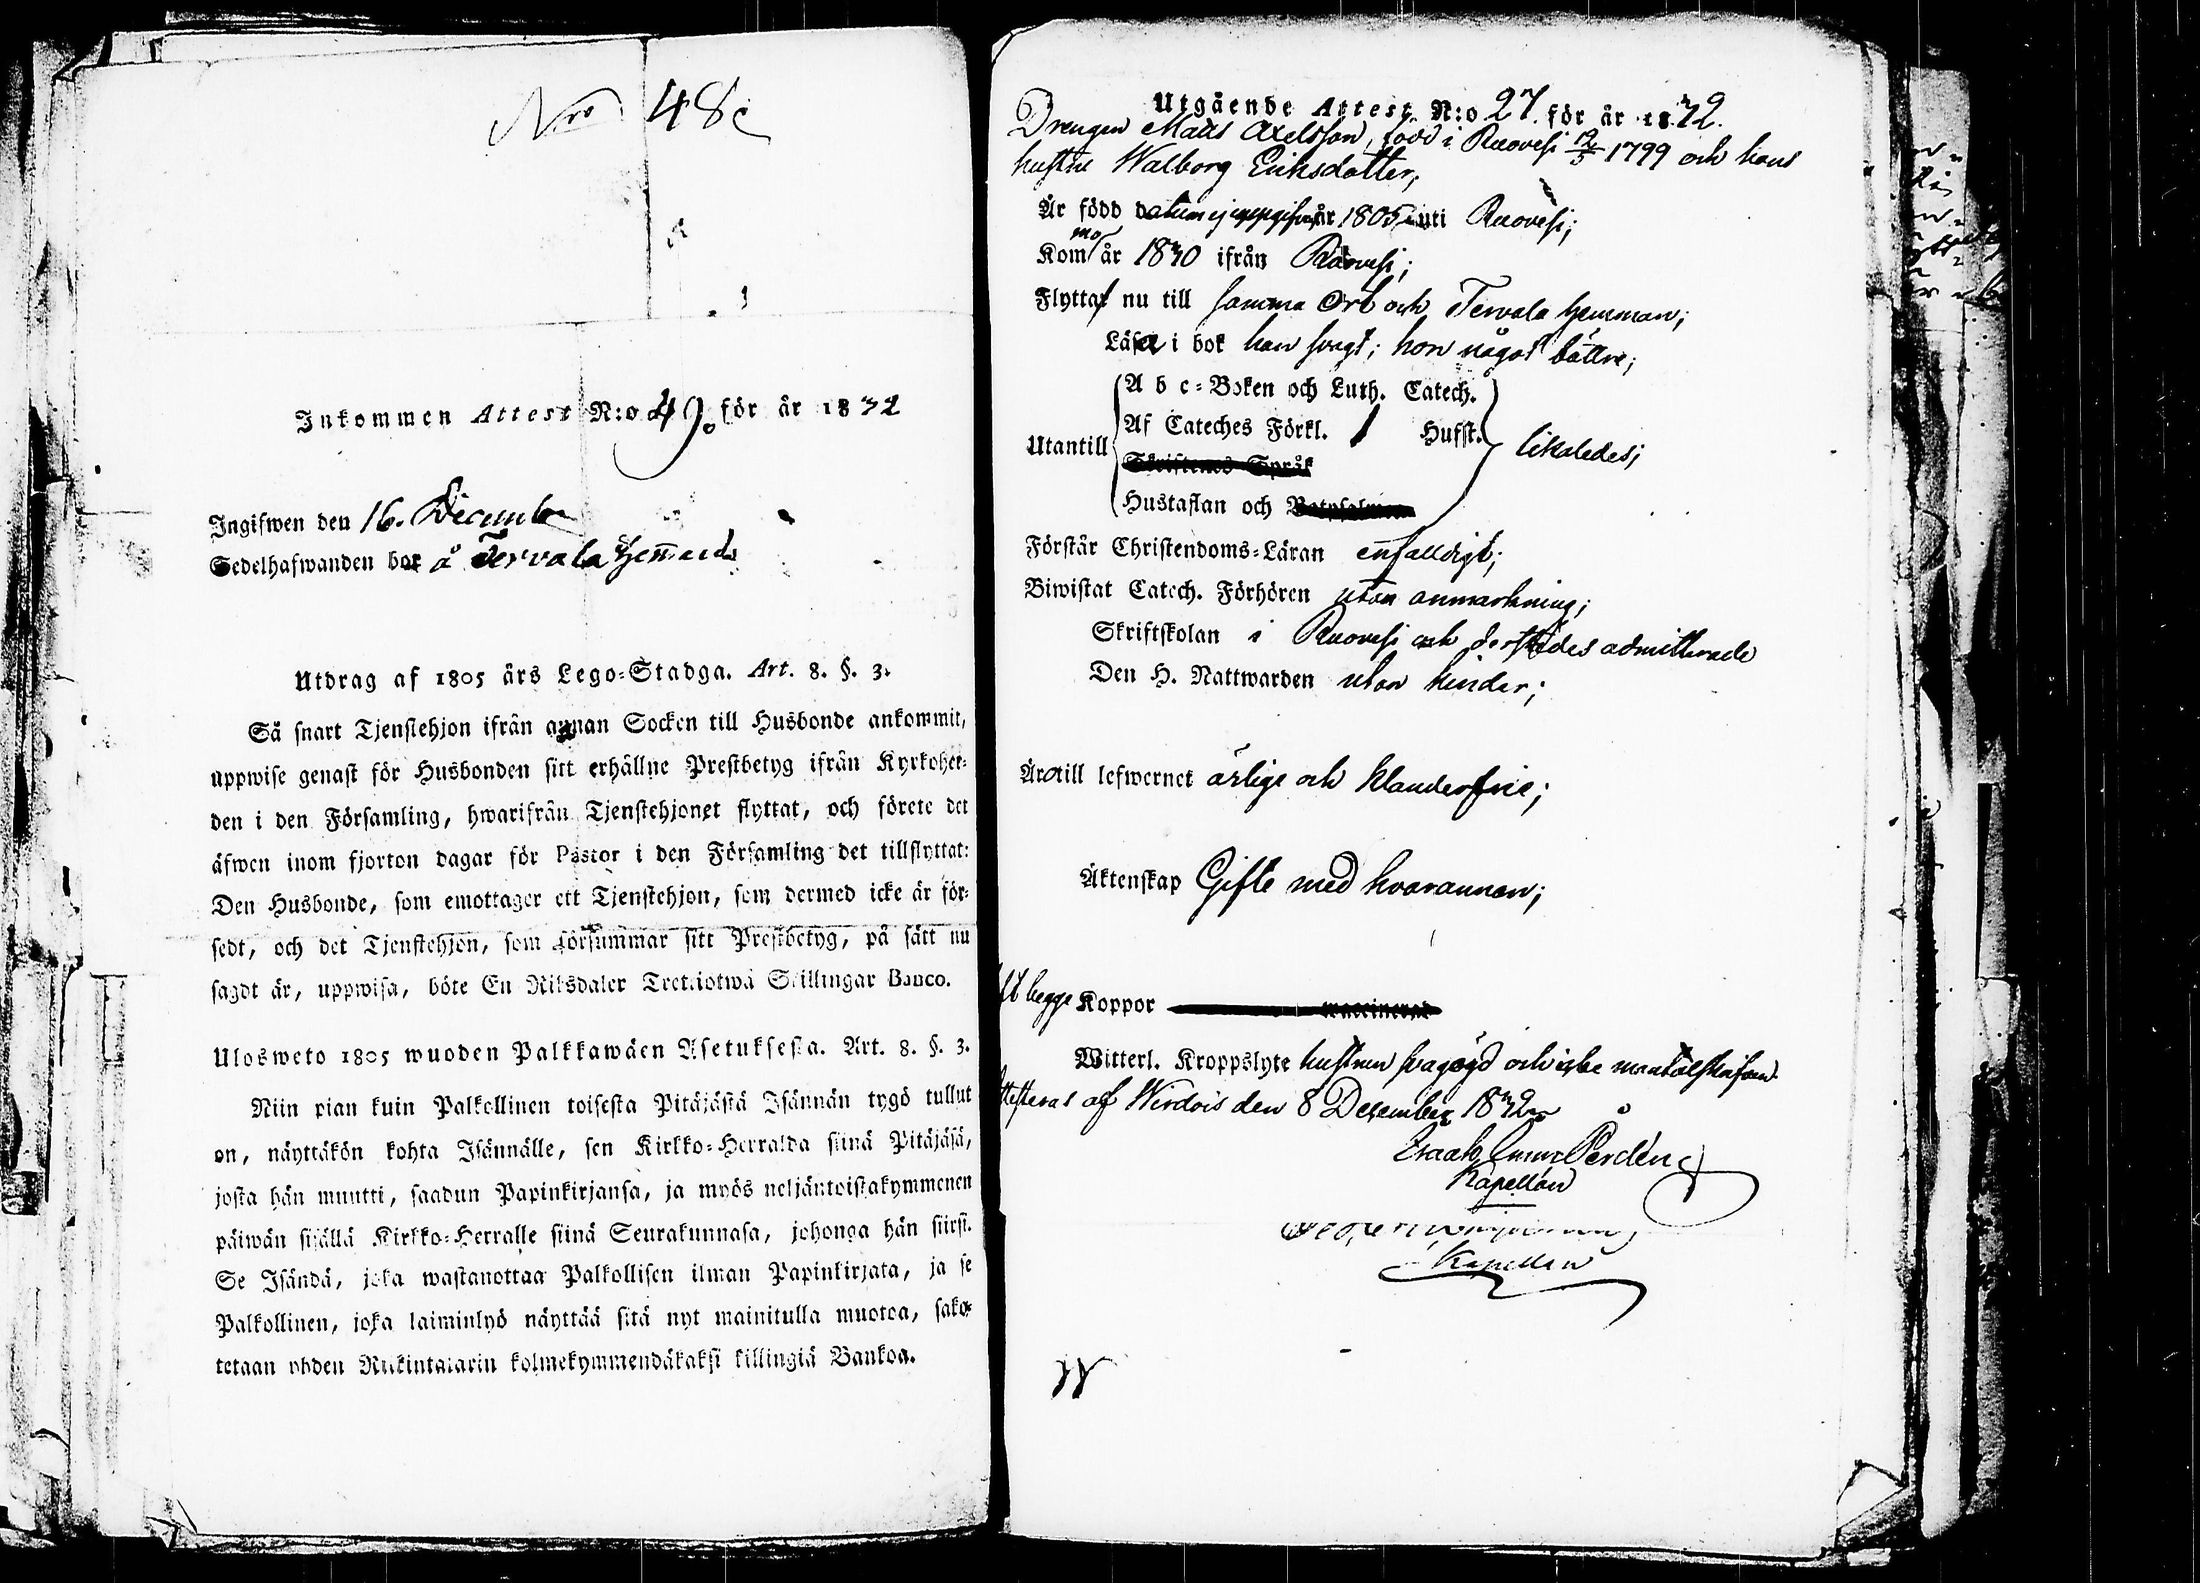 Nro 48
Inkommen Attest N:o 49. för år 1832
Ingifwen den 16. December
Sedelhafwanden bor å Tervala
Utdrag af 1805 års Lego-Stadga. Art. 8. §. 3.
Så snart Tjenstehjon ifrån annan Socken till Husbonde ankommit,
uppwise genast för Husbonden sitt erhållne Prestbetyg ifrån Kyrkoher-
den i den Församling, hwarifrån Tjenstehjonet flyttat, och förete det
äfwen inom fjorton dagar för Pastor i den Församling det tillflyttat:
Den Husbonde, som emottager ett Tjenstehjon, som dermed icke är för-
sedt, och det Tjenstehjon, som försummar sitt Prestbetyg, på sätt nu
sagdt är, uppwisa, böte En Riksdaler Trettiotwå Skillingar Banco.
Ulosweto 1805 wuoden Palkkawäen Asetuksesta. Art. 8. §. 3.
Niin pian kuin Palkollinen toisesta Pitäjästä Isännän tygö tullut
on, näyttäkön kohta Isännälle, sen Kirkko-Herralda siinä Pitäjäsä,
josta hän muutti, saadun Papinkirjansa, ja myös neljäntoistakymmenen
päiwän sisällä Kirkko-Herralle siinä Seurakunnasa, johonga hän siirsi.
Se Isändä, joka wastanottaa Palkollisen ilman Papinkirjata, ja se
Palkollinen, joka laiminlyö näyttää sitä nyt mainitulla muotoa, sako-
tetaan yhden Riikintalarin kolmekymmendäkaksi killingiä Bankoa.
Utgående Attest N:o 27. för år 1832.
Drengen Matts Axelsson, född i Ruovesi 12/5 1799 och hans
hustru Walborg Eriksdotter,
Är född datum ej uppgifvet år 1805 uti Ruovesi;
Kommo år 1830 ifrån Ruovesi;
Flytta nu till samma Ort och Tervala hemman;
Läsa i bok han svagt; hon något bättre;
Abc-Boken och Luth. Catech.
Af Cateches Förkl. Husf.
Utantill likaledes;
Skriftenes Språk
Hustaflan och Botpsalmen
Förstår Christendoms-Läran enfalldigt;
Biwistat Catech. Förhören utan anmärkning;
Skriftskolan i Ruovesi och derstädes admitterade
Den H. Nattwarden utan hinder;
Äro till lefwernet ärlige och klanderfrie;
Äktenskap Gifte med hvarannan;
begge Koppor waccinerad
Witterl. Kroppslyte hustrun svagögd och icke mantalskrifven.
Attesteras af Wirdois den 8 December 1832
Perdén
Kapellan
Kapellan